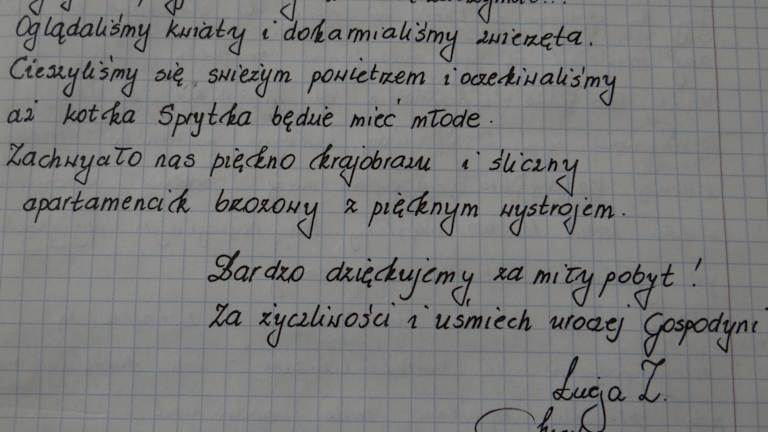 Oglądaliśmy kwiaty i dokarmialiśmy zwierzęta.
Cieszyliśmy się świeżym powietrzem i oczekiwaliśmy
aż kotka Sprytka będzie mieć młode.
Zachwycało nas piękno krajobrazu i śliczny
apartamencik brzozowy z pięknym wystrojem.
Bardzo dziękujemy za miły pobyt!
Za życzliwości i uśmiech uroczej Gospodyni
Łucja Z.